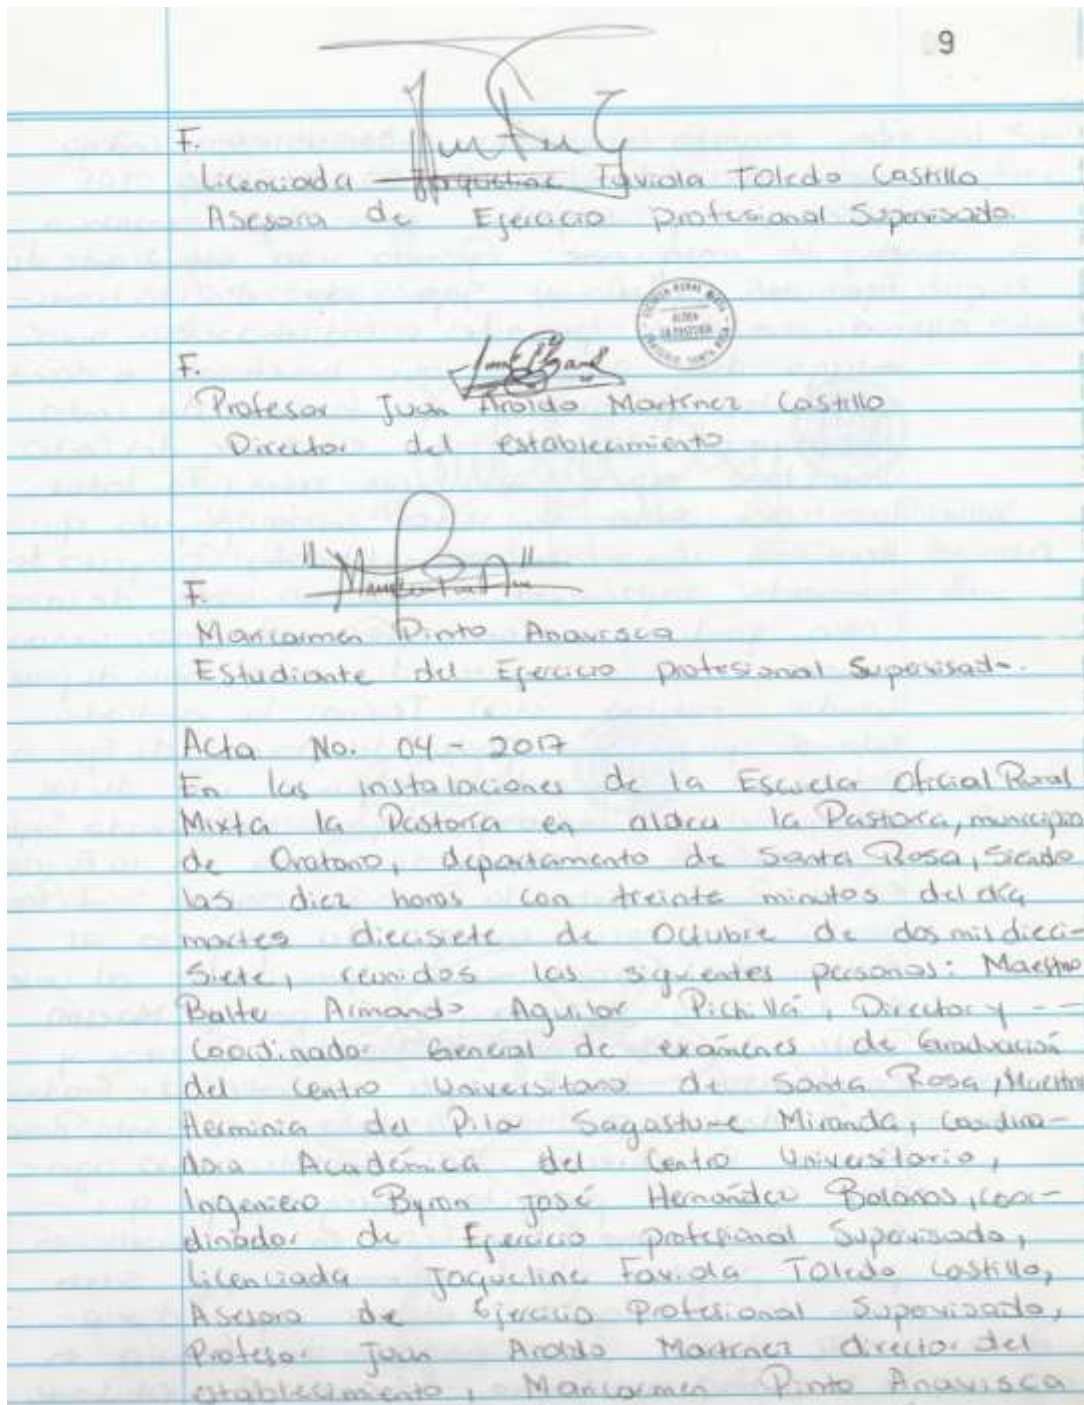 9
F.
Licenciada Jaqueline Faviola Toledo Castillo
Asesora de Ejercicio profesional Supervisado.
ESCUELA RURAL MIXTA
ALDEA
LA PASTORIA
SANTA ROSA
F.
Profesor Juan Aroldo Martínez Castillo
Director del establecimiento
F.
Maricarmen Pinto Anavisca
Estudiante del Ejercicio profesional Supervisado.
Acta No. 04 - 2017
En las instalaciones de la Escuela Oficial Rural
Mixta la Pastoría en aldea la Pastora, municipio
de Oratorio, departamento de Santa Rosa, siendo
las diez horas con treinta minutos del día
martes diecisiete de Octubre de dos mil dieci-
siete, reunidos las siguientes personas: Maestro
Balter Armando Aguilar Pichillá, Director y --
Coordinador General de exámenes de Graduación
del Centro Universitario de Santa Rosa, Maestra
Herminia del Pilar Sagastume Miranda, Coordina-
dora Académica del Centro Universitario,
Ingeniero Byron José Hernández Bolaños, Coor-
dinador de Ejercicio profesional Supervisado,
Licenciada Jaqueline Faviola Toledo Castillo,
Asesora de Ejercicio Profesional Supervisado,
Profesor Juan Aroldo Martínez director del
establecimiento, Maricarmen Pinto Anavisca